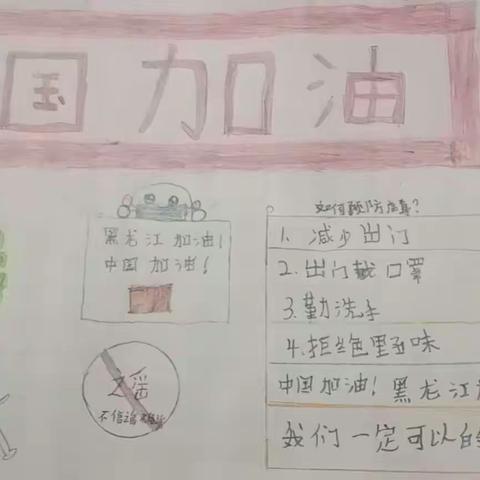 国加油
黑龙江加油!
中国加油!
如何预防病毒?
1. 减少出门
2. 出门戴口罩
3. 勤洗手
4. 拒绝野味
中国加油! 黑龙江
我们一定可以
谣
不信谣